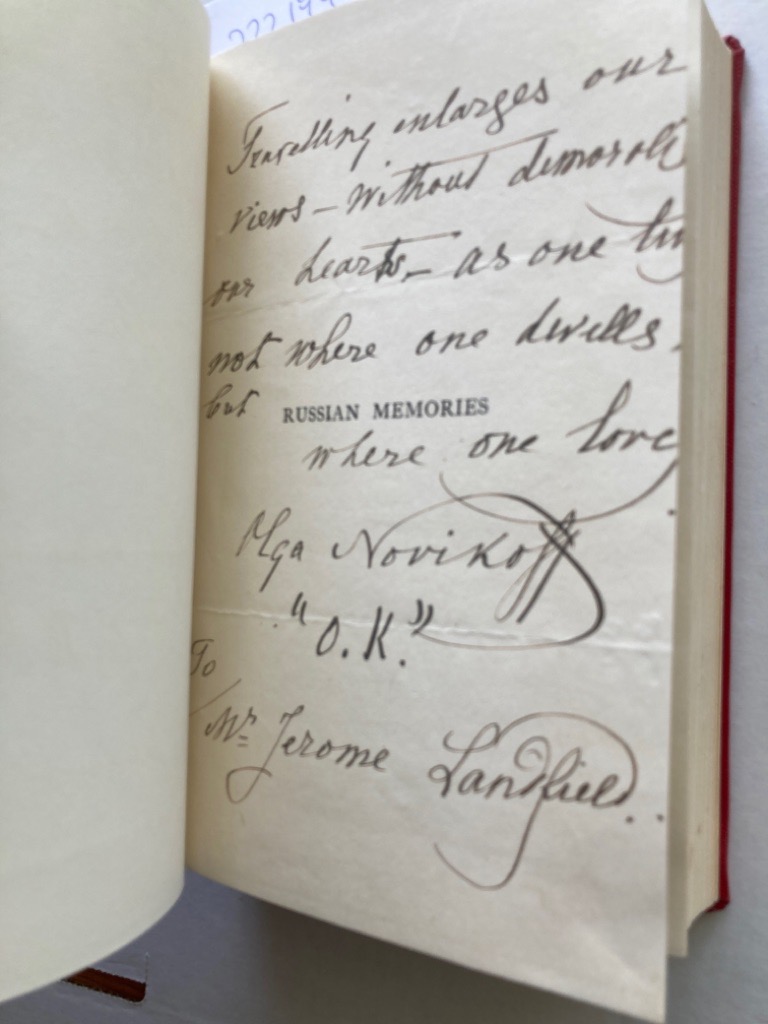 Travelling enlarges our
views – without demorali
our hearts – as one liv
not where one dwells.
but
RUSSIAN MEMORIES
where one love
Olga Novikoff
"O.K."
To
Mr Jerome Landfield..